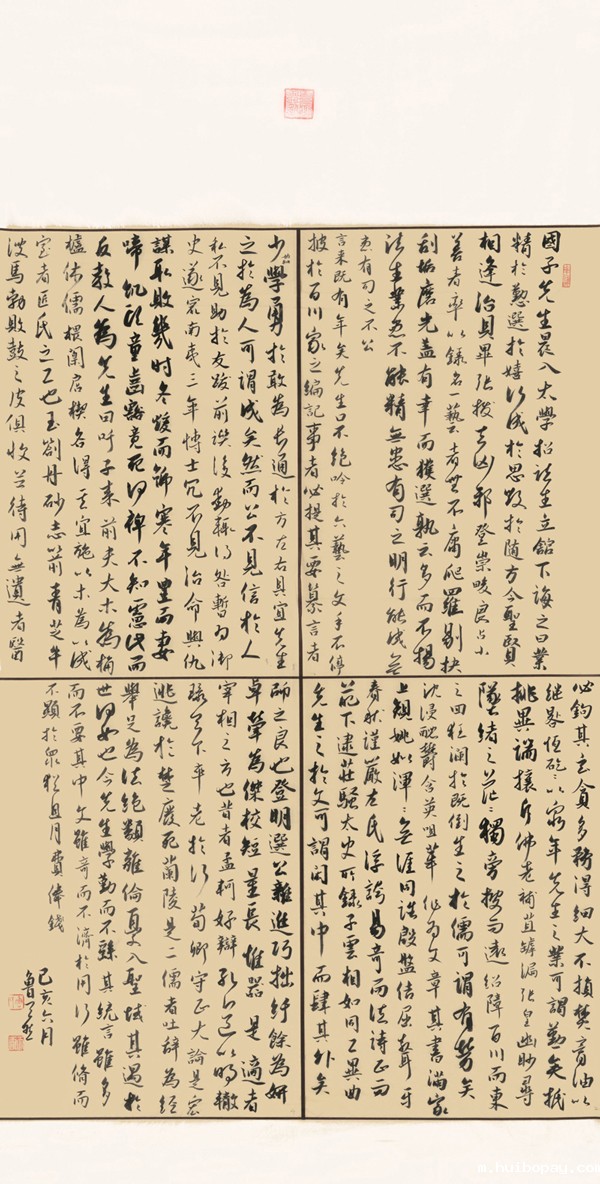 國子先生晨入太學招諸生立館下誨之曰業
精於勤荒於嬉行成於思毀於隨方今聖賢
相逢治具畢張拔去凶邪登崇畯良占小
善者率以錄名一藝云者無不庸爬羅剔抉
刮垢磨光蓋有幸而獲選孰云多而不揚
諸生業患不能精無患有司之明行能成無
患有司之不公
言未既有年矣先生口不絕吟於六藝之文手不停
披於百川家之編記事者必提其要纂言者
必鉤其玄貪多務得細大不捐焚膏油以
繼晷恆矻矻以窮年先生之業可謂勤矣抵
排異端攘斥佛老補苴罅漏張皇幽眇尋
墜緒之茫茫獨旁搜而遠紹障百川而東
之回狂瀾於既倒先生之於儒可謂有勞矣
沈浸醲鬱含英咀華作為文章其書滿家
上規姚姒渾渾無涯周誥殷盤佶屈聱牙
春秋謹嚴左氏浮誇易奇而法詩正而
葩下逮莊騷太史所錄子雲相如同工異曲
先生之於文可謂閎其中而肆其外矣
少始學勇於敢為長通於方左右具宜先生
之於為人可謂成矣然而公不見信於人
私不見助於友跋前躓後動輒得咎暫為御
史遂竄南夷三年博士冗不見治命與仇
謀取敗幾時冬煖而號寒年豐而妻
啼飢頭童齒豁竟死何裨不知慮此而
反教人為先生曰吁子來前夫大木為杗
櫨侏儒椳闑扂楔各得其宜施以木為以成
室者匠氏之工也玉劄丹砂赤箭青芝牛
溲馬勃敗鼓之皮俱收並待用無遺者醫
師之良也登明選公雜進巧拙紆餘為妍
卓犖為傑校短量長惟器是適者
宰相之方也昔者孟軻好辯孔道以明轍
環天下卒老於行荀卿守正大論是宏
逃讒於楚廢死蘭陵是二儒者吐辭為經
舉足為法絕類離倫優入聖域其遇於
世何如也今先生學勤而不繇其統言雖多
而不要其中文雖奇而不濟於用行雖脩而
不顯於眾猶且月費俸錢
己亥六月
魯
m.huibopay.com